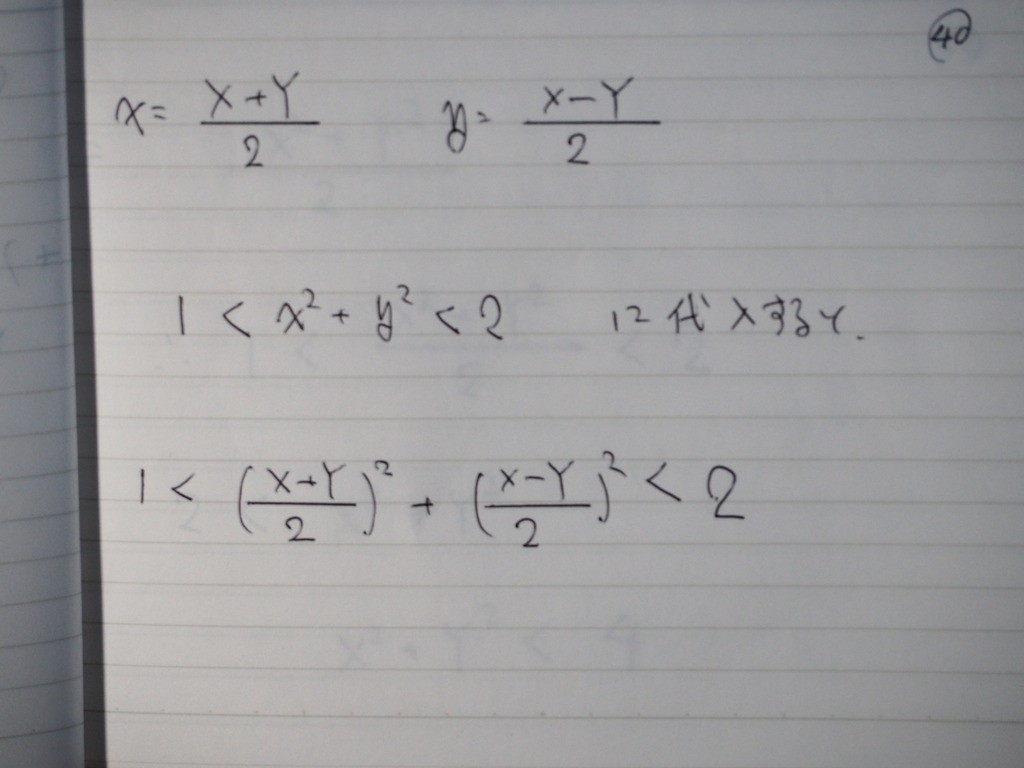 40
x = \frac{X+Y}{2} y = \frac{X-Y}{2}
1 < x² + y² < 2 に代入すると.
1 < (\frac{X+Y}{2})² + (\frac{X-Y}{2})² < 2